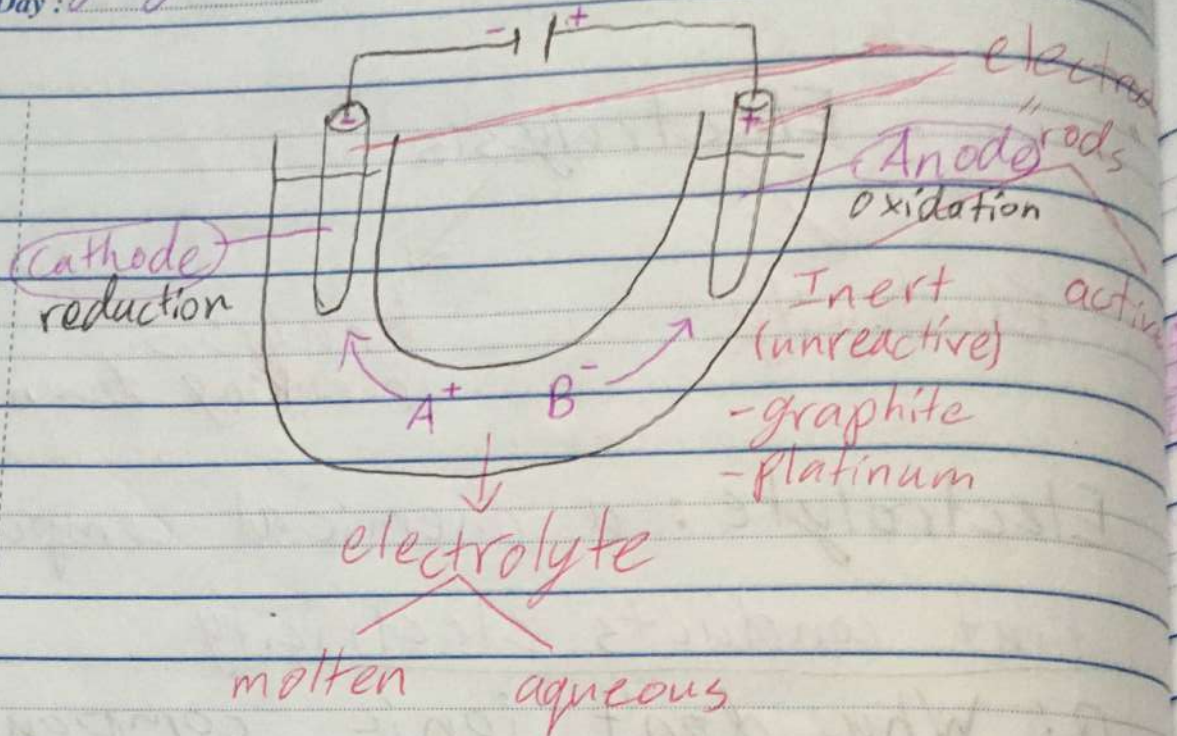 Day:
- +
electrod
" rods
- +
Anode
oxidation
Cathode
reduction
Inert
(unreactive)
- graphite
- Platinum
activ
A⁺ B⁻
electrolyte
molten aqueous